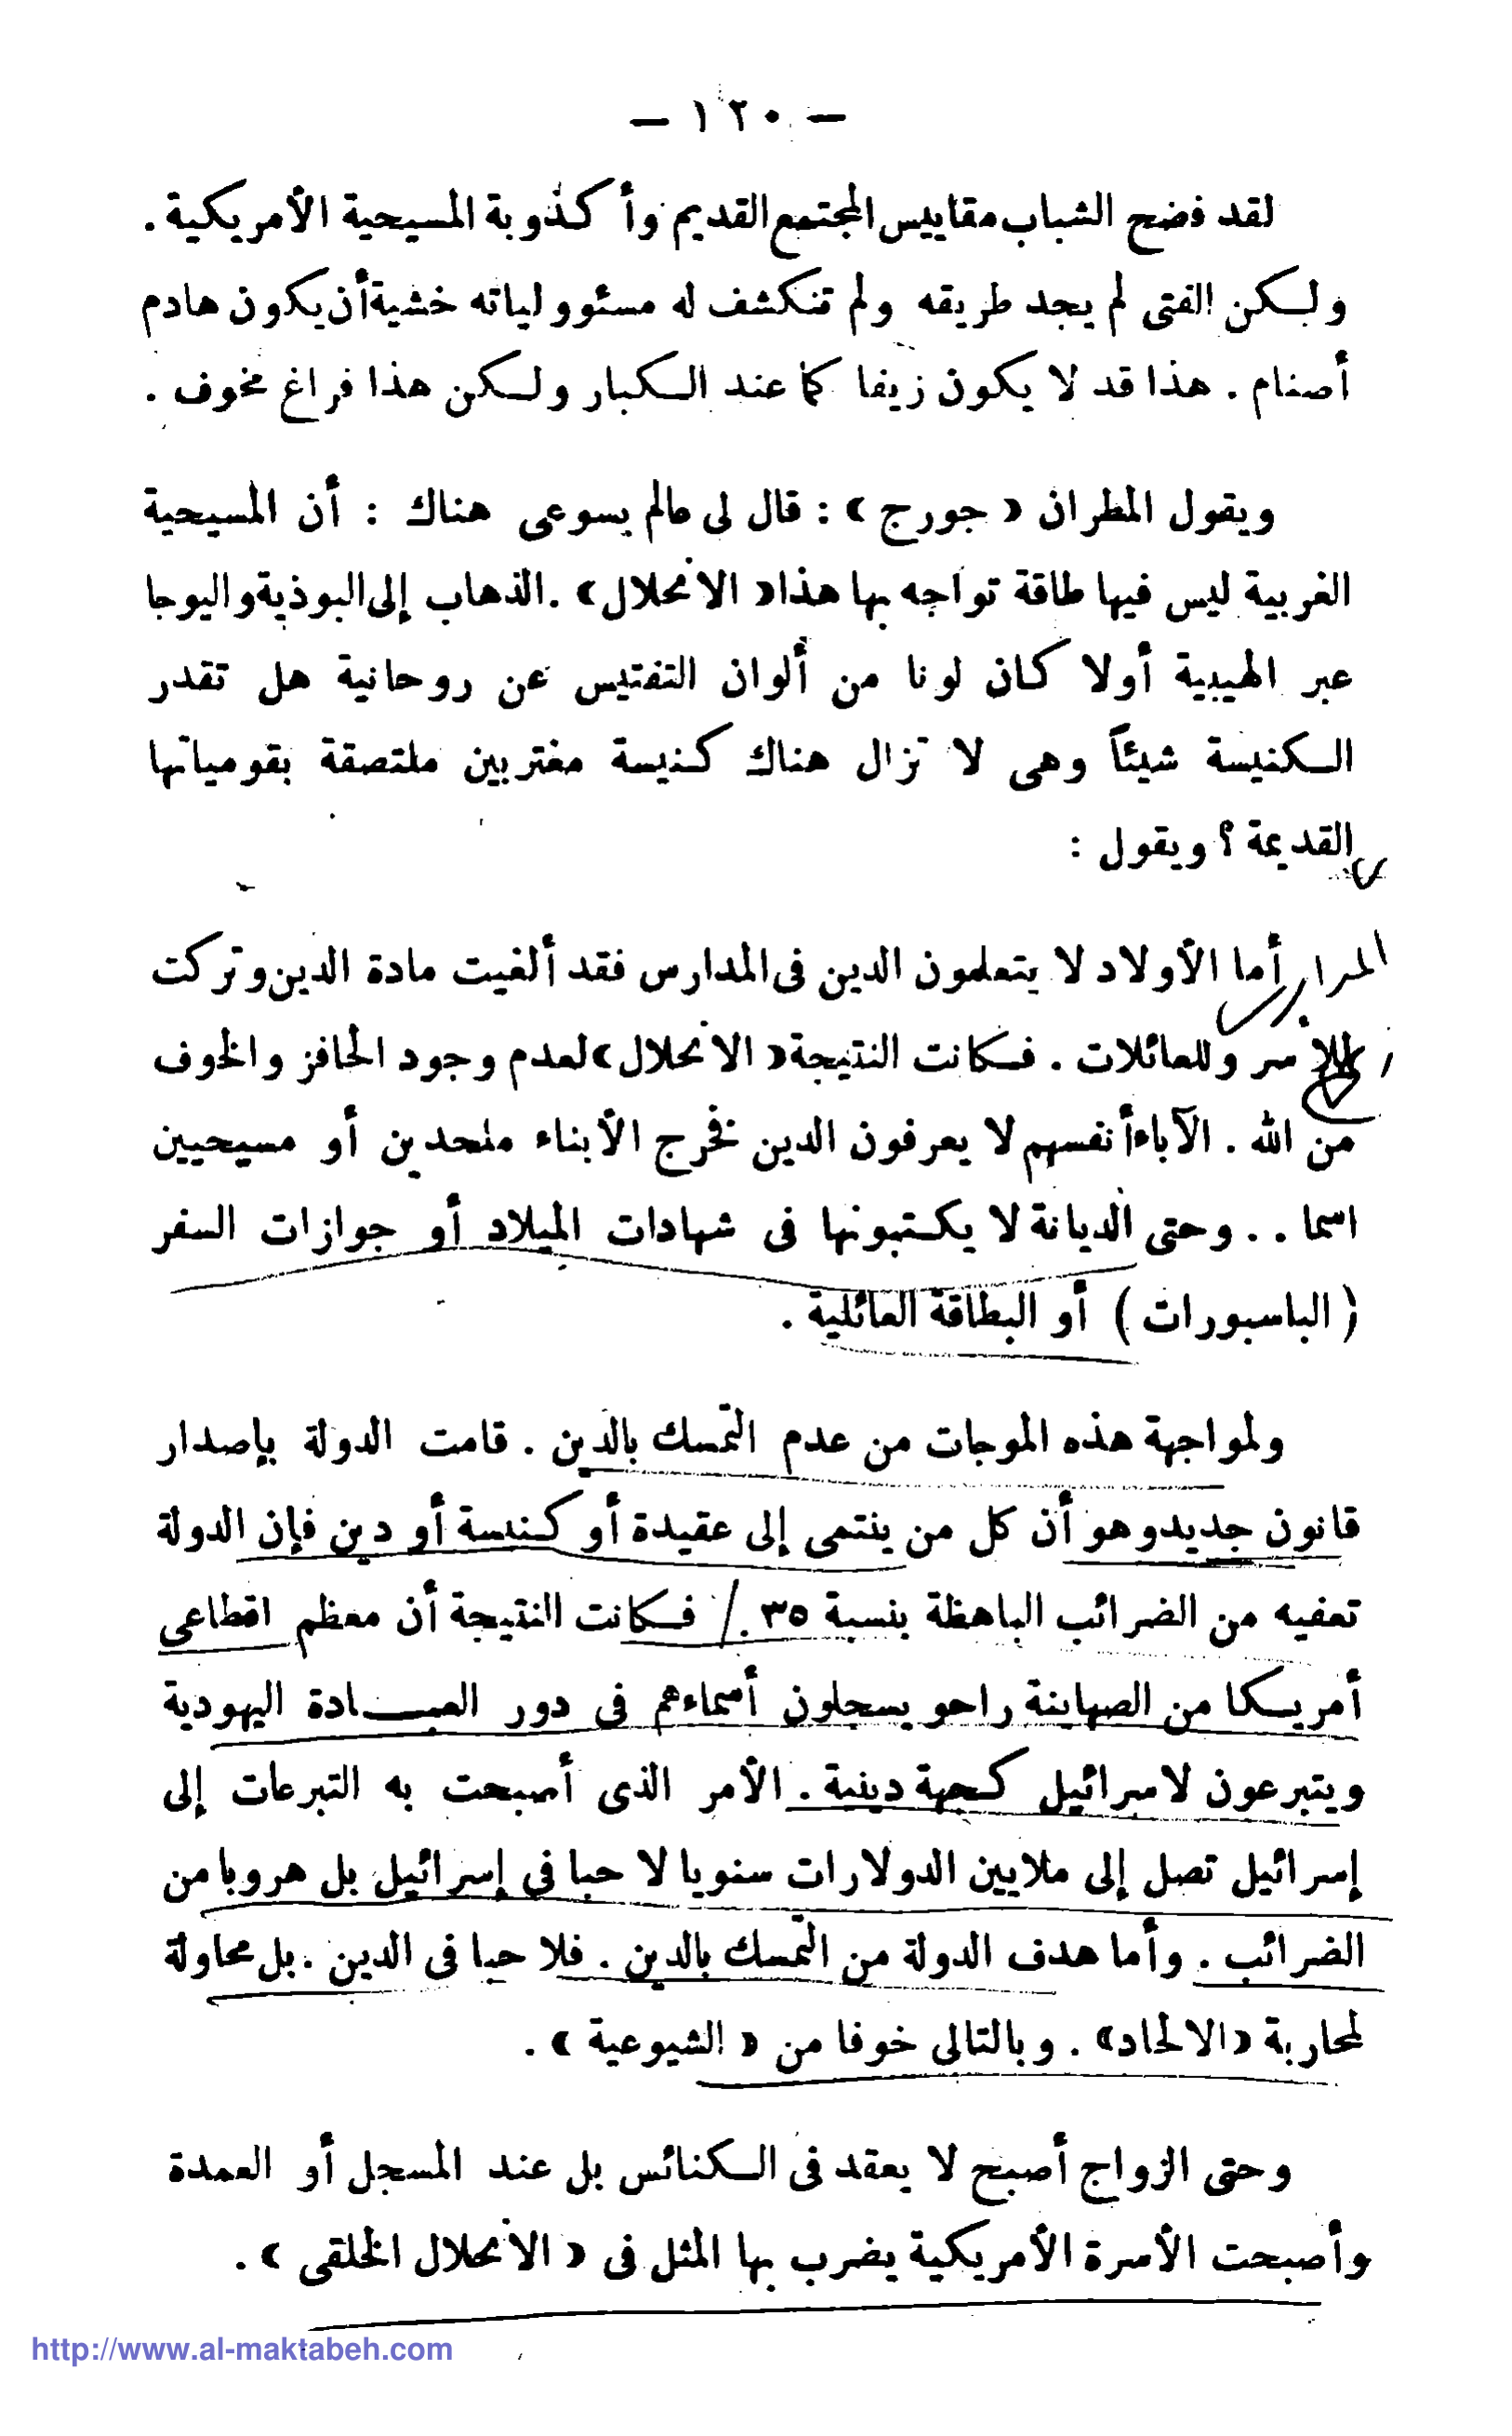 — ١٢٠ —
لقد فضح الشباب مقاييس المجتمع القديم وأكذوبة المسيحية الأمريكية .
ولكن الفتى لم يجد طريقه ولم تنكشف له مسئوولياته خشية أن يكون هادم
أصنام . هذا قد لا يكون زيفا كما عند الكبار ولكن هذا فراغ مخوف .
ويقول المطران « جورج » : قال لى عالم يسوعى هناك : أن المسيحية
الغربية ليس فيها طاقة تواجه بها هذا « الانحلال » . الذهاب إلى البوذية واليوجا
عبر الهيبية أولا كان لونا من ألوان التفتيس عن روحانية هل تقدر
الكنيسة شيئاً وهى لا تزال هناك كنيسة مغتربين ملتصقة بقومياتها
القديمة ؟ ويقول :
أما الأولاد لا يتعلمون الدين فى المدارس فقد ألغيت مادة الدين وتركت
للاسر وللعائلات . فكانت النتيجة « الانحلال » لعدم وجود الحافز والخوف
من الله . الآباء أنفسهم لا يعرفون الدين فخرج الأبناء ملحدين أو مسيحيين
اسما . . وحتى الديانة لا يكتبونها فى شهادات الميلاد أو جوازات السفر
( الباسبورات ) أو البطاقة العائلية .
ولمواجهة هذه الموجات من عدم التمسك بالدين . قامت الدولة بإصدار
قانون جديد وهو أن كل من ينتمى إلى عقيدة أو كنيسة أو دين فإن الدولة
تعفيه من الضرائب الباهظة بنسبة ٣٥ ./ فكانت النتيجة أن معظم اقطاعى
أمريكا من الصهاينة راحو يسجلون أسماءهم فى دور العبادة اليهودية
ويتبرعون لاسرائيل كجهة دينية . الأمر الذى أصبحت به التبرعات إلى
إسرائيل تصل إلى ملايين الدولارات سنويا لا حبا فى إسرائيل بل هروبا من
الضرائب . وأما هدف الدولة من التمسك بالدين . فلا حبا فى الدين . بل محاولة
لمحاربة « الالحاد » . وبالتالى خوفا من « الشيوعية » .
وحتى الزواج أصبح لا يعقد فى الكنائس بل عند المسجل أو العمدة
وأصبحت الأسرة الأمريكية يضرب بها المثل فى « الانحلال الخلقى » .
http://www.al-maktabeh.com